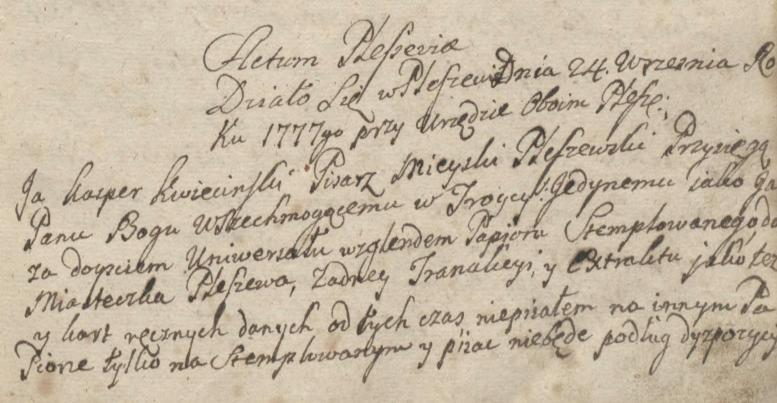 Actum Plesseviæ
Działo Się w Pleszewie Dnia 24. Wrzesnia Ro
Ku 1777go przy Urzędzie Oboim Plesze:
Ja Kasper Kwiecinski Pisarz Mieyski Pleszewski Przysięgą
Panu Bogu Wszechmogącemu w Troycy Jedynemu jako ja
za doysciem Uniwersału względem Papióru Stemplowanego, do
Miasteczka Pleszewa, Zadney Tranakcyi, y Extraktu jako tez
y kart ręcznych danych od tych czas niepisałem na innym Pa
Piorze tylko na Stemplowanym y pisac niebędę podług dyzpozycy